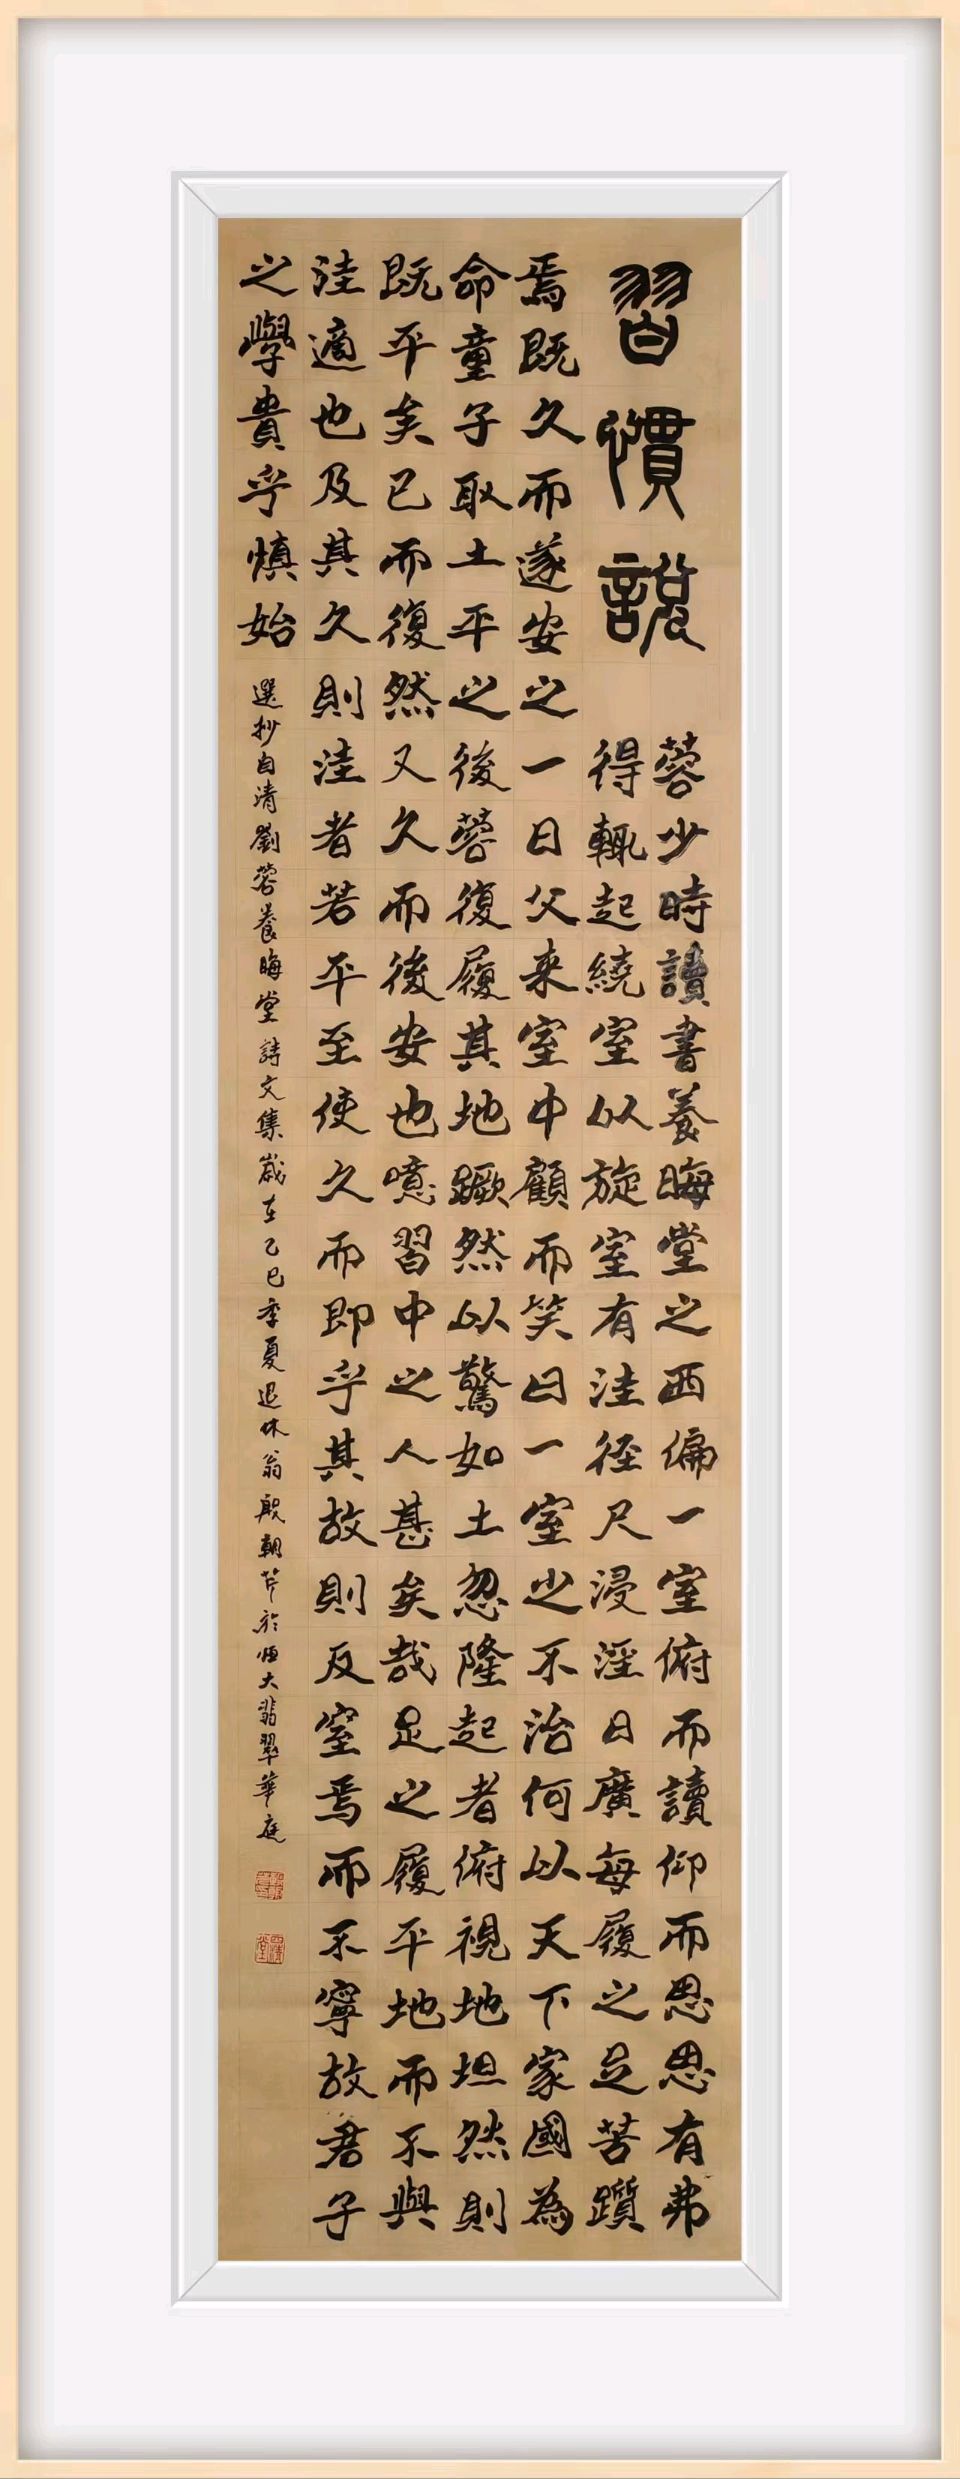 習慣說
蓉少時讀書養晦堂之西偏一室俯而讀仰而思思有弗
得輒起繞室以旋室有洼徑尺浸淫日廣每履之足苦躓
焉既久而遂安之一日父来室中顧而笑曰一室之不治何以天下家國為
命童子取土平之後蓉復履其地蹶然以驚如土忽隆起者俯視地坦然則
既平矣已而復然又久而後安也噫習中之人甚矣哉足之履平地而不與
洼適也及其久則洼者若平至使久而即乎其故則反窒焉而不寧故君子
之學貴乎慎始
選抄自清劉蓉養晦堂詩文集歲在乙巳季夏退休翁殷朝芹於恒大翡翠華庭